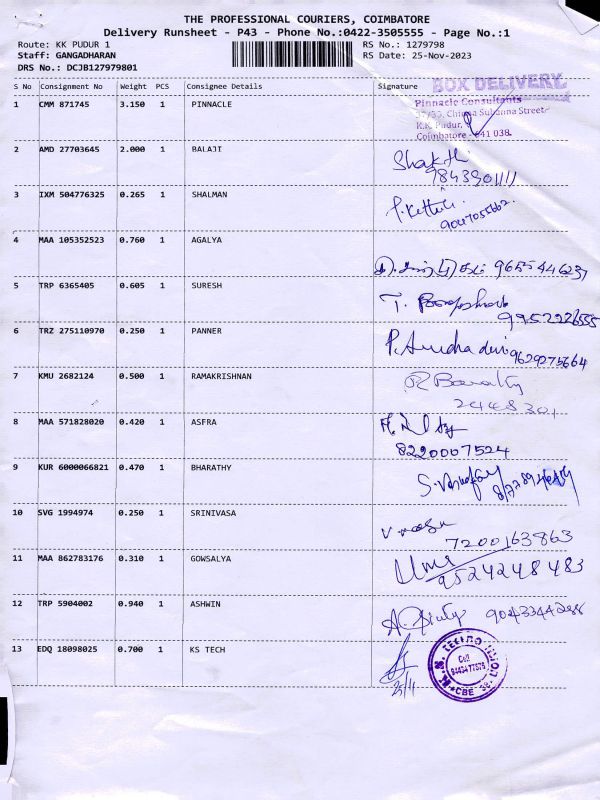 THE PROFESSIONAL COURIERS, COIMBATORE
Delivery Runsheet - P43 - Phone No.:0422-3505555 - Page No.:1
Route: KK PUDUR 1 RS No.: 1279798
Staff: GANGADHARAN RS Date: 25-Nov-2023
DRS No.: DCJB127979801
S No Consignment No Weight PCS Consignee Details Signature
BOX DELIVERY
1 CMM 871745 3.150 1 PINNACLE Pinnacle Consultants
37/33, Chinna Subanna Street
K.K. Pudur,
Coimbatore - 641 038.
2 AMD 27703645 2.000 1 BALAJI
Shakthi
3 IXM 504776325 0.265 1 SHALMAN
9047055662.
4 MAA 105352523 0.760 1 AGALYA
9655446237
5 TRP 6365405 0.605 1 SURESH
T.
9952226555
6 TRZ 275110970 0.250 1 PANNER
P. Anudha devi 9629275664
7 KMU 2682124 0.500 1 RAMAKRISHNAN
2448301
8 MAA 571828020 0.420 1 ASFRA
8220007524
9 KUR 6000066821 0.470 1 BHARATHY
10 SVG 1994974 0.250 1 SRINIVASA
7200163863
11 MAA 862783176 0.310 1 GOWSALYA
Uma
9524248483
12 TRP 5904002 0.940 1 ASHWIN
13 EDQ 18098025 0.700 1 KS TECH
25/11
Cell
CBE